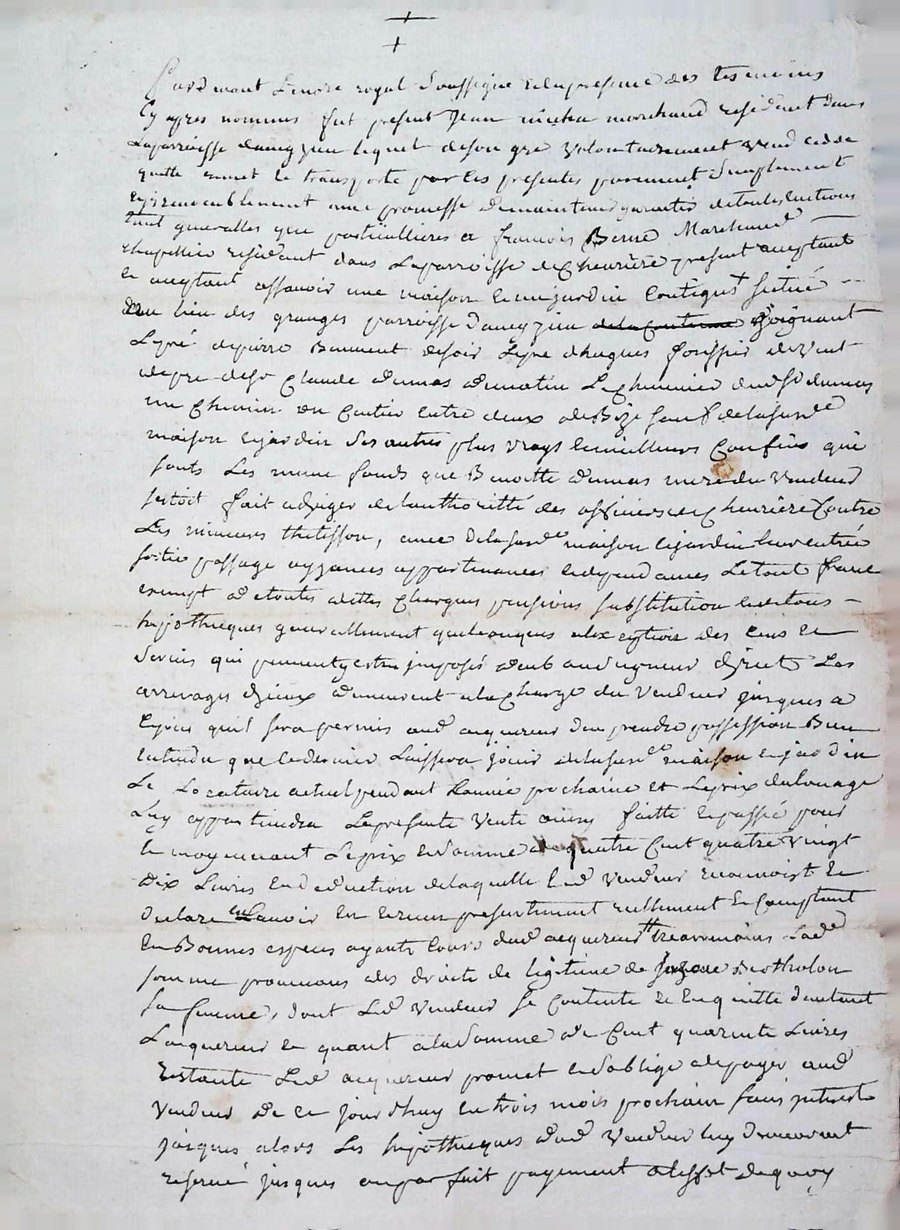 Pardevant Lenore royal soussigné Enlapresence des tesmoins
Cy apres nommes fut present Jean marchand residant dans
Laparroisse lequel deson gre volontairement vend cedde
quitte remet et transporte par ces presentes purement simplement
Eyirrevocablement avec promesse demaintenir garantir detoutes Evictions
tant generalles que particullieres a francois Marchand
chapellier residant dans Laparroisse de Chevrière present acceptant
Et aceptant assavoir une maison Et un jardin Contigus + scitué
Au lieu des granges parroisse joignant
Lepré depierre desoir Lepre dhugues devent
Lepre deso Claude dumas dematin Le Chemin dudt Sr dumas
un Chemin ou Entre deux deBize sauf delasusde
maison Ejardin ses autres plus vrays Emeilleurs Confins qui
sonts Les meme fonds que Benoitte dumas mere du Vendeur
sestoit fait adjuger delauthoritté des officiers de Chevrière Contre
Les mineurs thelisson, avec delasusde maison Ejardin leur entrée
sortie passage ayzances appartenances Edependances Letout franc
exempt de toutes dettes Charges pensions substitution Et detous
hipotheques generallement quelconques alexeption des Cens Et
servis qui peuvent y estre imposés dub aud seigneur direct Les
arrerages dyceux demeurent alacharge du Vendeur jusques a
Cejour quil sera permis aud acquereur den prendre possession Bien
Entendu que Cedernier Laissera jouir delasusde maison Ejardin
Le Locataire actuel pendant Lannée prochaine et Leprix dulouage
Luy appartiendra Lapresente Vente ainsy faitte Epassée pour
Et moyennant Leprix Edsomme de quatre Cent quatre Vingt
Dix Livres En deduction delaquelle Led Vendeur reconnoist Et
declare avoir Eu Erecu presentement reellement Et Comptant
En Bonnes especes ayants Cours dud acquereur Lade
somme provenant des droits de legitime de Bertholon
sa femme, dont Led Vendeur se Contente Et Enquitte dautant
Lacquereur Et quant alasomme de Cent quarente Livres
Restante Led acquereur promet Edsoblige de payer aud
Vendeur de ce jourdhuy En trois mois prochain sans interest
jusques alors Les hipotheques dud Vendeur luy demeurant
reservé jusques auparfait payement aleffet dequoy